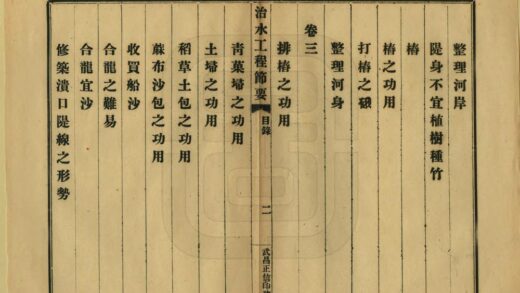 整理河岸
隄身不宜植樹種竹
樁
樁之功用
打樁之硪
整理河身
卷三
排樁之功用
治水工程節要
目錄
二
武昌正信印
靑菓埽之功用
土埽之功用
稻草土包之功用
蔴布沙包之功用
收買船沙
合龍之難易
合龍宜沙
修築潰口隄線之形勢